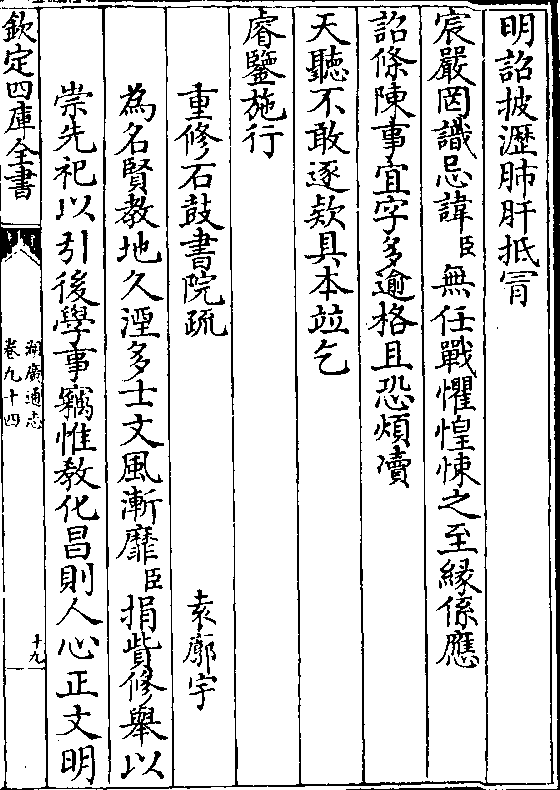 明詔披瀝肺肝抵冒
宸嚴罔識忌諱臣無任戰懼惶悚之至緣係應
詔條陳事宜字多逾格且恐煩瀆
天聽不敢逐欵具本竝乞
睿鑒施行
重修石鼓書院疏　袁廓宇
為名賢教地久湮多士文風漸靡臣捐貲修舉以
崇先祀以引後學事竊惟教化昌則人心正文明
欽定四庫全書
湖廣通志
卷九十四
十九